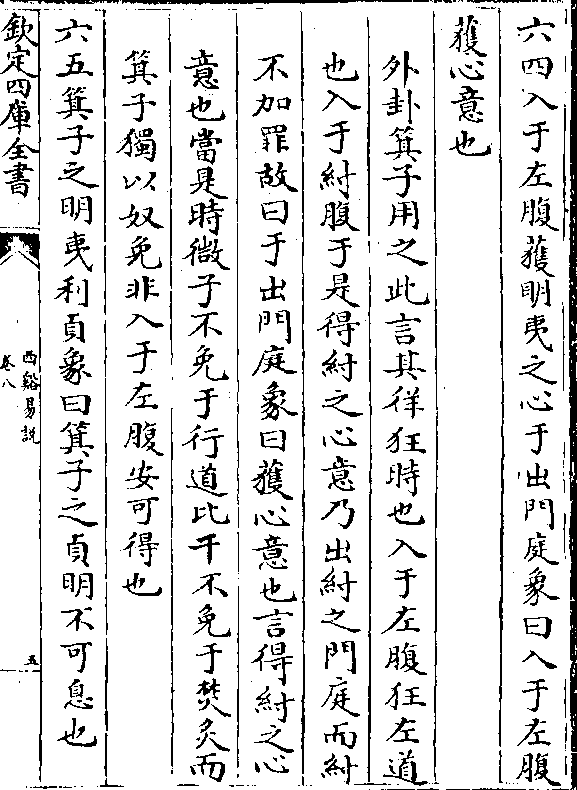 六四入于左腹獲明夷之心于出門庭象曰入于左腹
獲心意也
外卦箕子用之此言其徉狂時也入于左腹狂左道
也入于紂腹于是得紂之心意乃出紂之門庭而紂
不加罪故曰于出門庭象曰獲心意也言得紂之心
意也當是時微子不免于行道比干不免于焚炙而
箕子獨以奴免非入于左腹安可得也
六五箕子之明夷利貞象曰箕子之貞明不可息也
欽定四庫全書
西谿易説
卷八
五